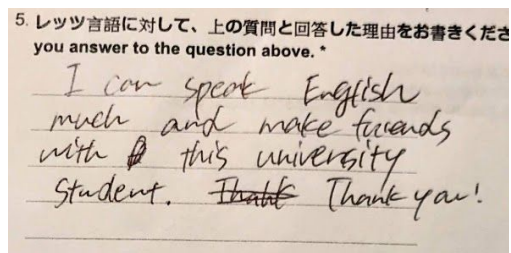 5. レッツ言語に対して、上の質問と回答した理由をお書きくださ
you answer to the question above. *
I can speak English
much and make friends
with this university
Student. Thank you!